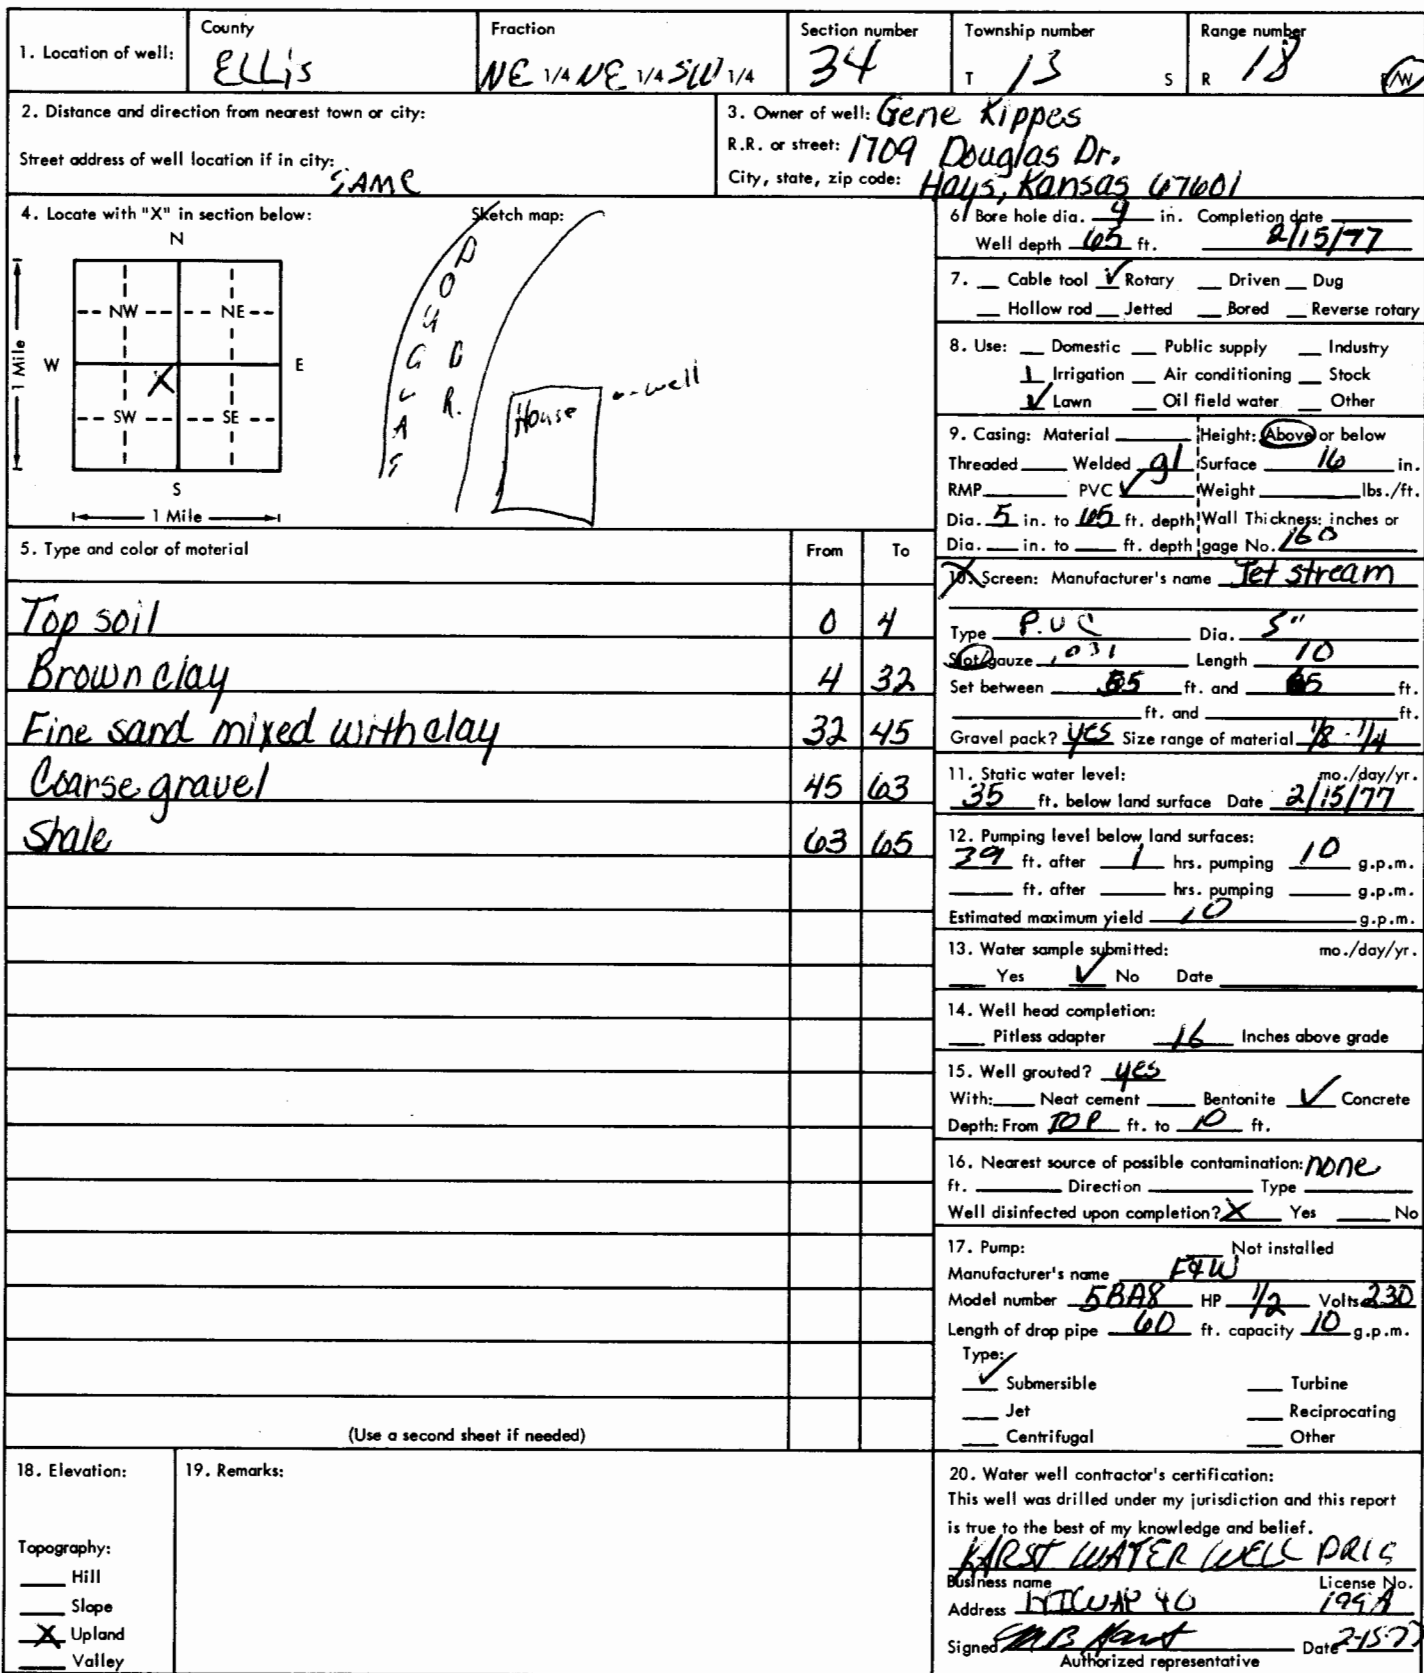 1. Location of well:
County
Ellis
Fraction
NE 1/4 NE 1/4 SW 1/4
Section number
34
Township number
T 13 S
Range number
R 18 E/W
2. Distance and direction from nearest town or city:
Street address of well location if in city: SAME
3. Owner of well: Gene Kippes
R.R. or street: 1709 Douglas Dr.
City, state, zip code: Hays, Kansas 67601
4. Locate with "X" in section below:
N
NW NE
W E
X
SW SE
S
1 Mile
1 Mile
Sketch map:
DOUGLAS
DR.
House
well
5. Type and color of material From To
Top soil 0 4
Brown clay 4 32
Fine sand mixed with clay 32 45
Coarse gravel 45 63
Shale 63 65
(Use a second sheet if needed)
6. Bore hole dia. 9 in. Completion date
Well depth 65 ft. 2/15/77
7. Cable tool ✓ Rotary Driven Dug
Hollow rod Jetted Bored Reverse rotary
8. Use: Domestic Public supply Industry
Irrigation Air conditioning Stock
✓ Lawn Oil field water Other
9. Casing: Material Height: Above or below
Threaded Welded gl Surface 16 in.
RMP PVC ✓ Weight lbs./ft.
Dia. 5 in. to 65 ft. depth Wall Thickness: inches or
Dia. in. to ft. depth gage No. 160
10. Screen: Manufacturer's name Jet stream
Type P.V.C Dia. 5"
Slot/gauze .031 Length 10
Set between 55 ft. and 65 ft.
ft. and ft.
Gravel pack? yes Size range of material 1/8 - 1/4
11. Static water level: mo./day/yr.
35 ft. below land surface Date 2/15/77
12. Pumping level below land surfaces:
39 ft. after 1 hrs. pumping 10 g.p.m.
ft. after hrs. pumping g.p.m.
Estimated maximum yield 10 g.p.m.
13. Water sample submitted: mo./day/yr.
Yes ✓ No Date
14. Well head completion:
Pitless adapter 16 Inches above grade
15. Well grouted? yes
With: Neat cement Bentonite ✓ Concrete
Depth: From TOP ft. to 10 ft.
16. Nearest source of possible contamination: none
ft. Direction Type
Well disinfected upon completion? X Yes No
17. Pump: Not installed
Manufacturer's name F&W
Model number 5BA8 HP 1/2 Volts 230
Length of drop pipe 60 ft. capacity 10 g.p.m.
Type:
✓ Submersible Turbine
Jet Reciprocating
Centrifugal Other
18. Elevation:
Topography:
Hill
Slope
X Upland
Valley
19. Remarks:
20. Water well contractor's certification:
This well was drilled under my jurisdiction and this report
is true to the best of my knowledge and belief.
KARST WATER WELL DRLG
Business name License No.
Address 40 199A
Signed Date 2-15-77
Authorized representative